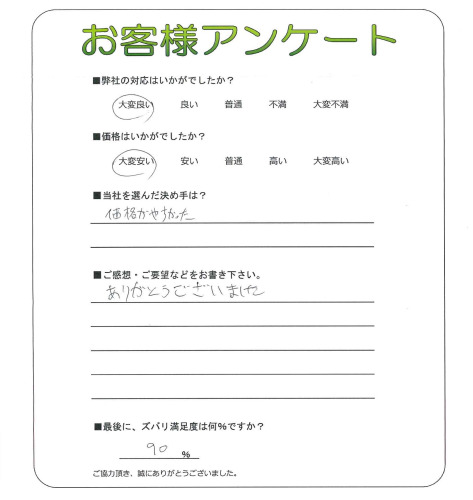 お客様アンケート
■弊社の対応はいかがでしたか？
大変良い 良い 普通 不満 大変不満
■価格はいかがでしたか？
大変安い 安い 普通 高い 大変高い
■当社を選んだ決め手は？
価格がやすかった
■ご感想・ご要望などをお書き下さい。
ありがとうございました
■最後に、ズバリ満足度は何%ですか？
90 %
ご協力頂き、誠にありがとうございました。